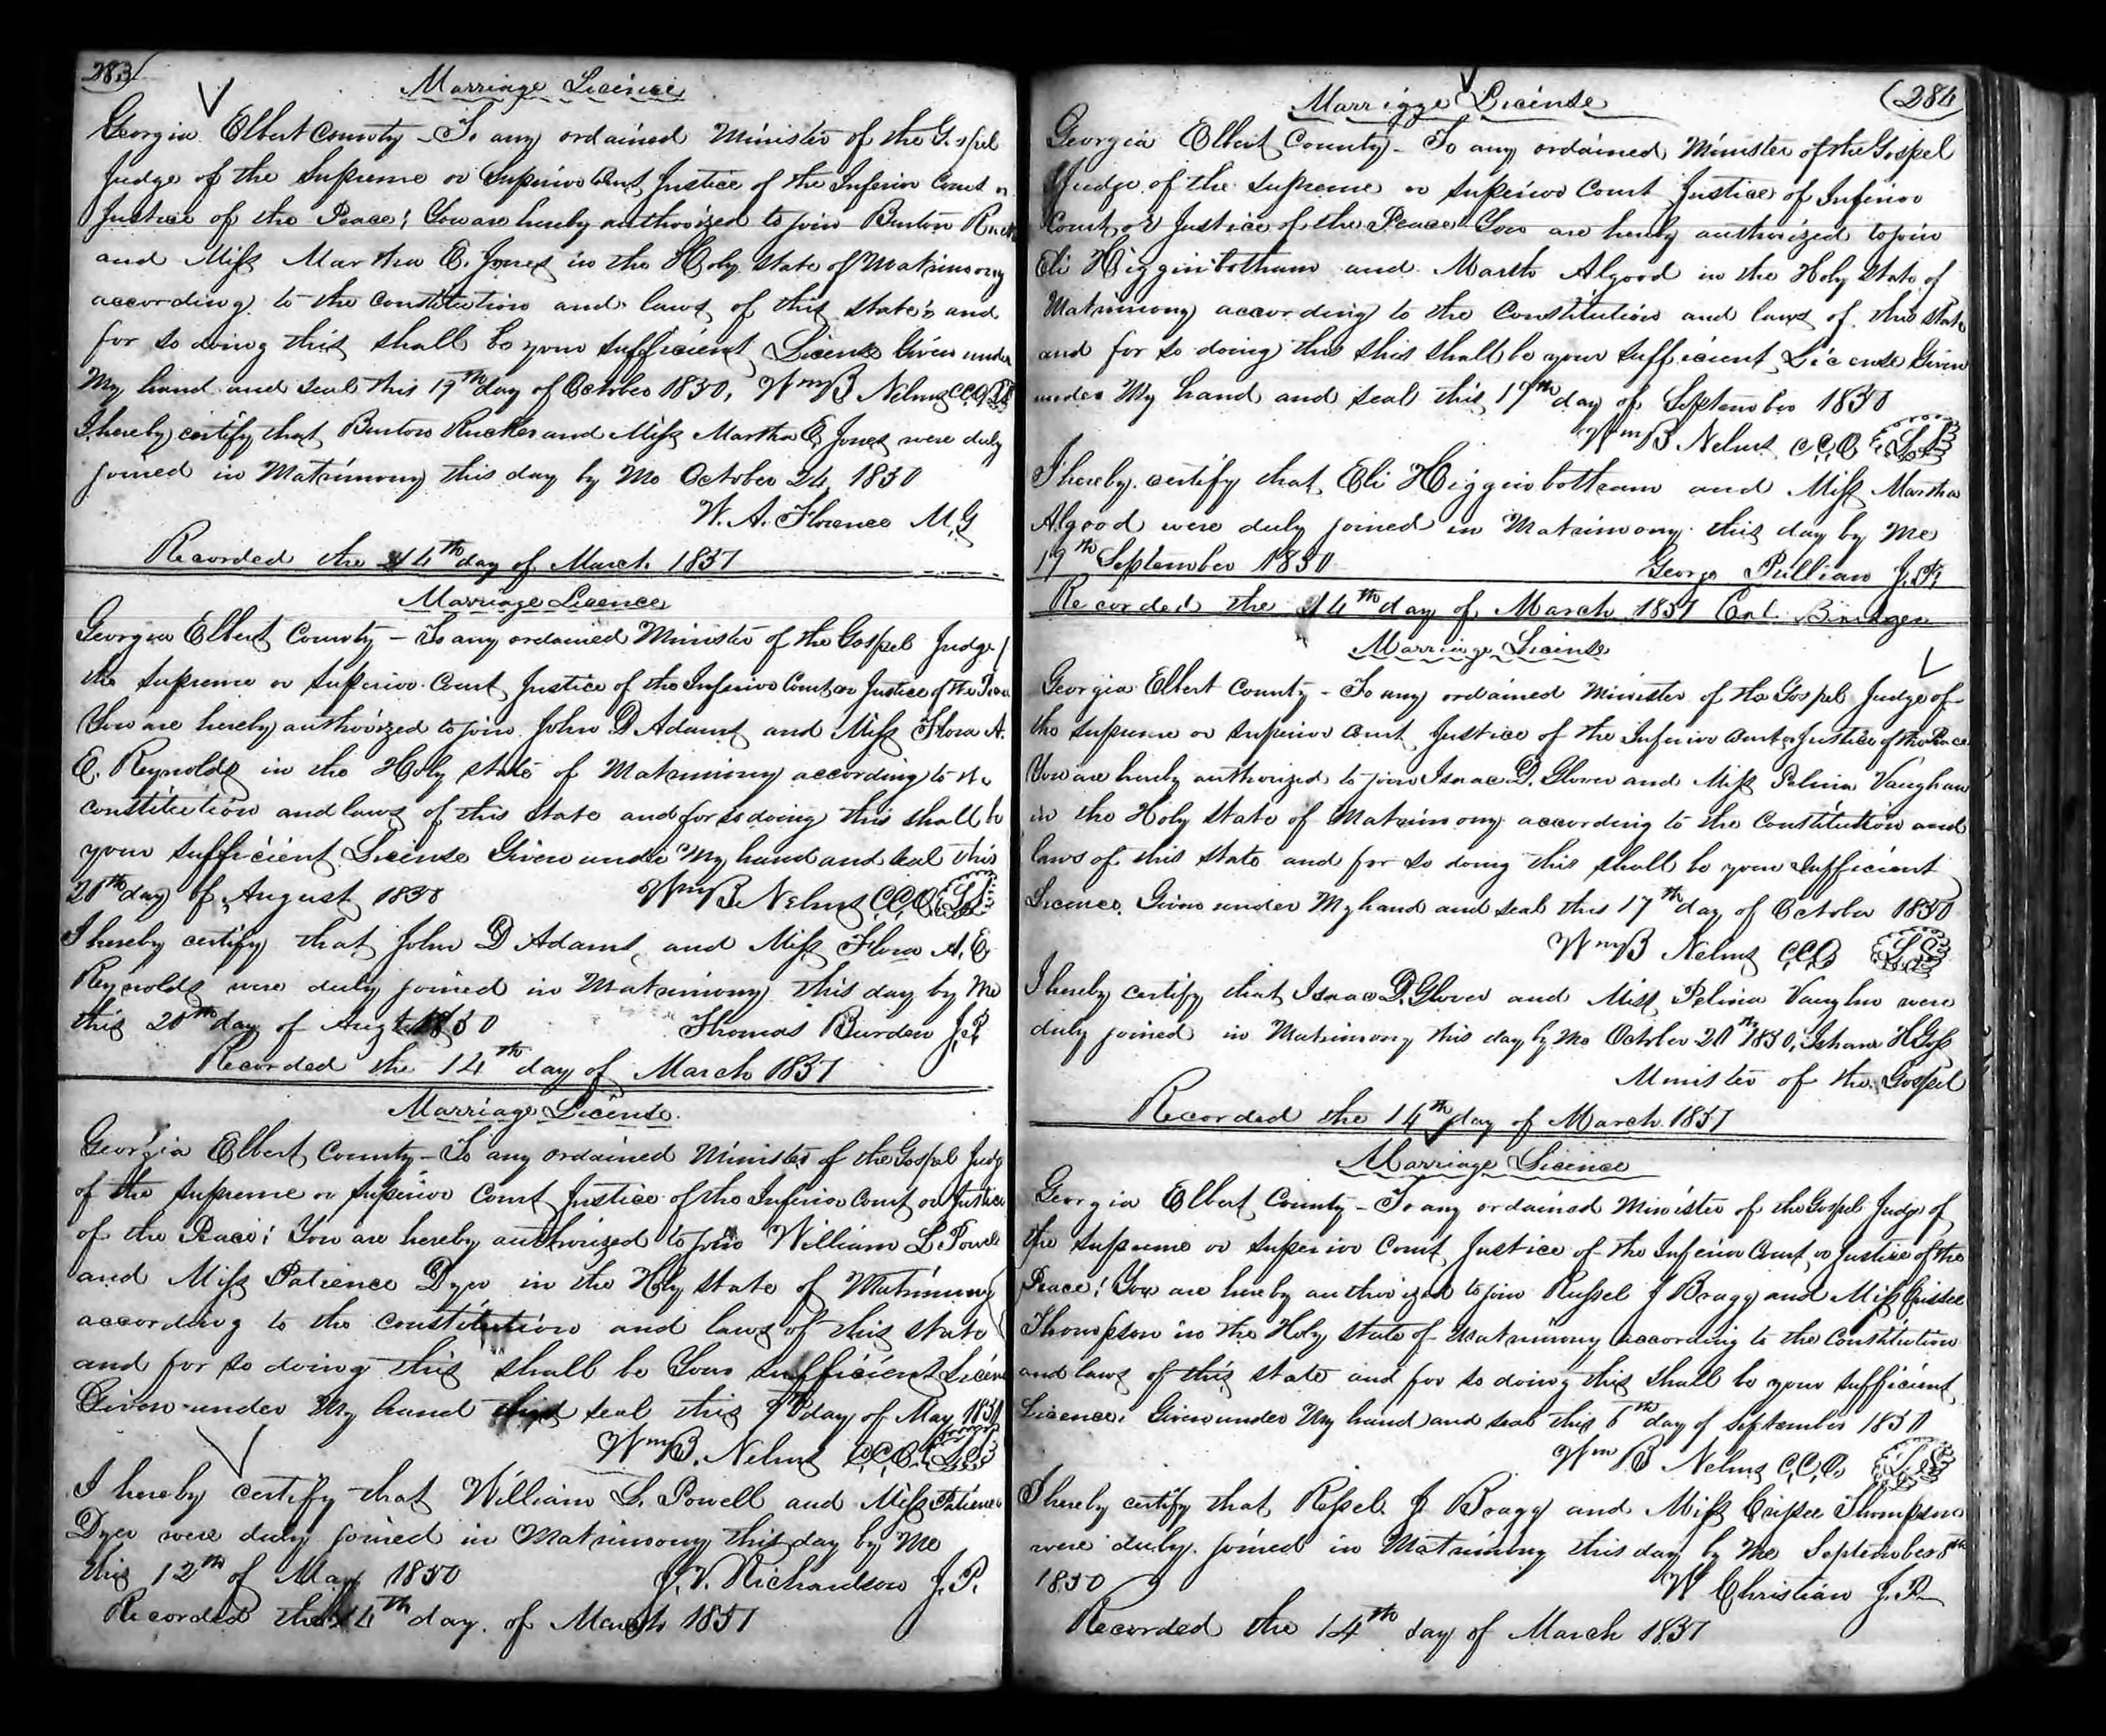 283
Marriage Licence
Georgia Elbert County - To any ordained Minister of the Gospel
Judge of the Supreme or Superior Court, Justice of the Inferior Court or
Justice of the Peace; You are hereby authorized to join Burton
and Miss Martha E. Jones in the Holy state of Matrimony
according to the Constitution and laws of this state & and
for so doing this shall be your sufficient License Given under
My hand and seal this 17th day of October 1850, Wm B Nelms C.C.O. L.S.
I hereby certify that Burton Rucker and Miss Martha E. Jones were duly
joined in Matrimony this day by Me October 24 1850
W. A. Florence M.G
Recorded the 14th day of March 1851
Marriage Licence
Georgia Elbert County - To any ordained Minister of the Gospel Judge of
the Supreme or Superior Court, Justice of the Inferior Court or Justice of the Peace
You are hereby authorized to join John D Adams and Miss Flora A.
E. Reynolds in the Holy state of Matrimony according to the
constitution and laws of this state and for so doing this shall be
your sufficient License Given under My hand and seal this
20th day of August 1850 Wm B. Nelms C.C.O. L.S.
I hereby certify that John D Adams and Miss Flora A. E
Reynolds were duly joined in Matrimony this day by Me
this 20th day of Augt 1850 Thomas Burden J.P.
Recorded the 14th day of March 1851
Marriage License
Georgia Elbert County - To any ordained Minister of the Gospel Judge
of the Supreme or Superior Court Justice of the Inferior Court or Justice
of the Peace; You are hereby authorized to join William L. Powell
and Miss Patience Dyer in the Holy state of Matrimony
according to the constitution and laws of this state
and for so doing this shall be Your sufficient Licence
Given under My hand and seal this day of May 1850
Wm B. Nelms C.C.O. L.S.
I hereby certify that William L. Powell and Miss Patience
Dyer were duly joined in Matrimony this day by Me
this 12th of May 1850 J. V. Richardson J.P.
Recorded the 14th day of March 1851
284
Marrigge License
Georgia Elbert County - To any ordained Minister of the Gospel
Judge of the Supreme or Superior Court Justice of Inferior
Court or Justice of the Peace You are hereby authorized to join
Eli Higginbotham and Marth Algood in the Holy state of
Matrimony according to the Constitution and laws of this state
and for so doing this this shall be your sufficient License Given
under My hand and seal this 17th day of September 1850
Wm B Nelms C.C.O L.S
I hereby certify that Eli Higginbotham and Miss Martha
Algood were duly joined in Matrimony this day by Me
19th September 1850 George Pullian J.P.
Recorded the 14th day of March 1851
Marriage License
Georgia Elbert County - To any ordained Minister of the Gospel Judge of
the Supreme or Superior Court Justice of the Inferior Court or Justice of the Peace
You are hereby authorized to join Isaac D. Glover and Miss Pelina Vaughan
in the Holy state of Matrimony according to the Constitution and
laws of this state and for so doing this shall be your sufficient
Licence. Given under My hand and seal this 17th day of October 1850
Wm B Nelms C.C.O L.S
I hereby certify that Isaac D. Glover and Miss Pelina Vaughn were
duly joined in Matrimony this day by Me October 20th 1850, Isham H Goss
Minister of the Gospel
Recorded the 14th day of March 1851
Marriage Licence
Georgia Elbert County - To any ordained Minister of the Gospel Judge of
the Supreme or Superior Court Justice of the Inferior Court or Justice of the
Peace; You are hereby authorized to join Russel J Bragg and Miss
Thompson in the Holy state of Matrimony according to the Constitution
and laws of this state and for so doing this shall be your sufficient
Licence. Given under My hand and seal this 6th day of September 1850
Wm B Nelms C.C.O. L.S
I hereby certify that Russel J Bragg and Miss Crisee Thompson
were duly joined in Matrimony this day by Me September 8th
1850 W Christian J.P.
Recorded the 14th day of March 1851